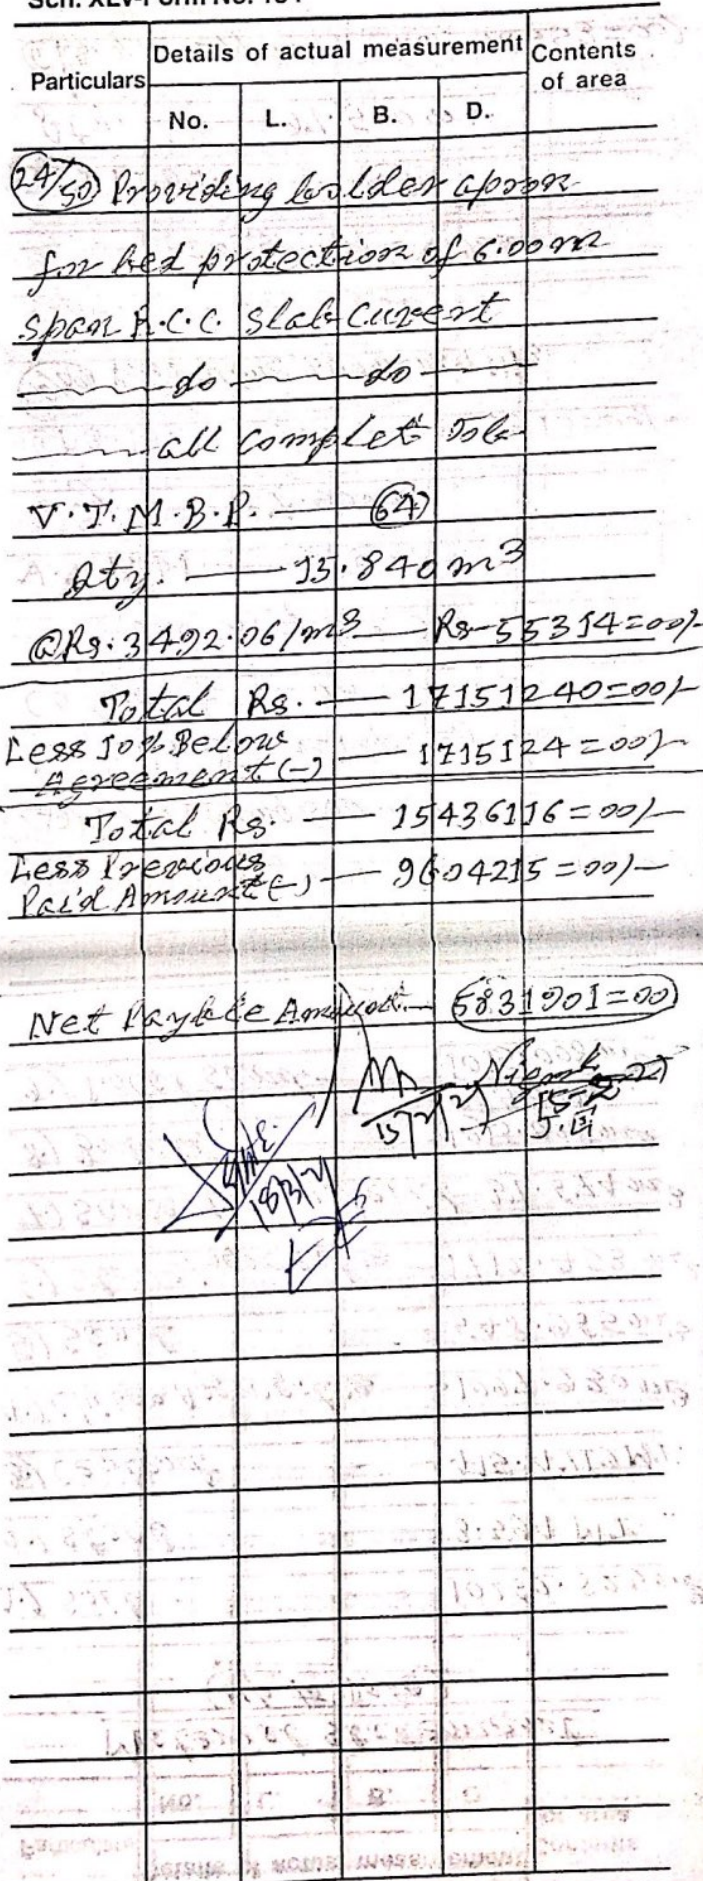 Particulars
Details of actual measurement
Contents of area
No. L. B. D.
24/50 Providing bolder apron
for bed protection of 6.00m
span R.C.C. Slab Cuvert
do do
all complet Job
V.T.M.B.P. — 64
Qty. — 15.840 m3
@Rs.3492.06/m3 — Rs-55314=00/-
Total Rs. — 17151240=00/-
Less 10% Below
Agreement (-) — 1715124=00/-
Total Rs. — 15436116=00/-
Less Previous
Paid Amount (-) — 9604215=00/-
Net Payble Amount — 5831901=00
J.E